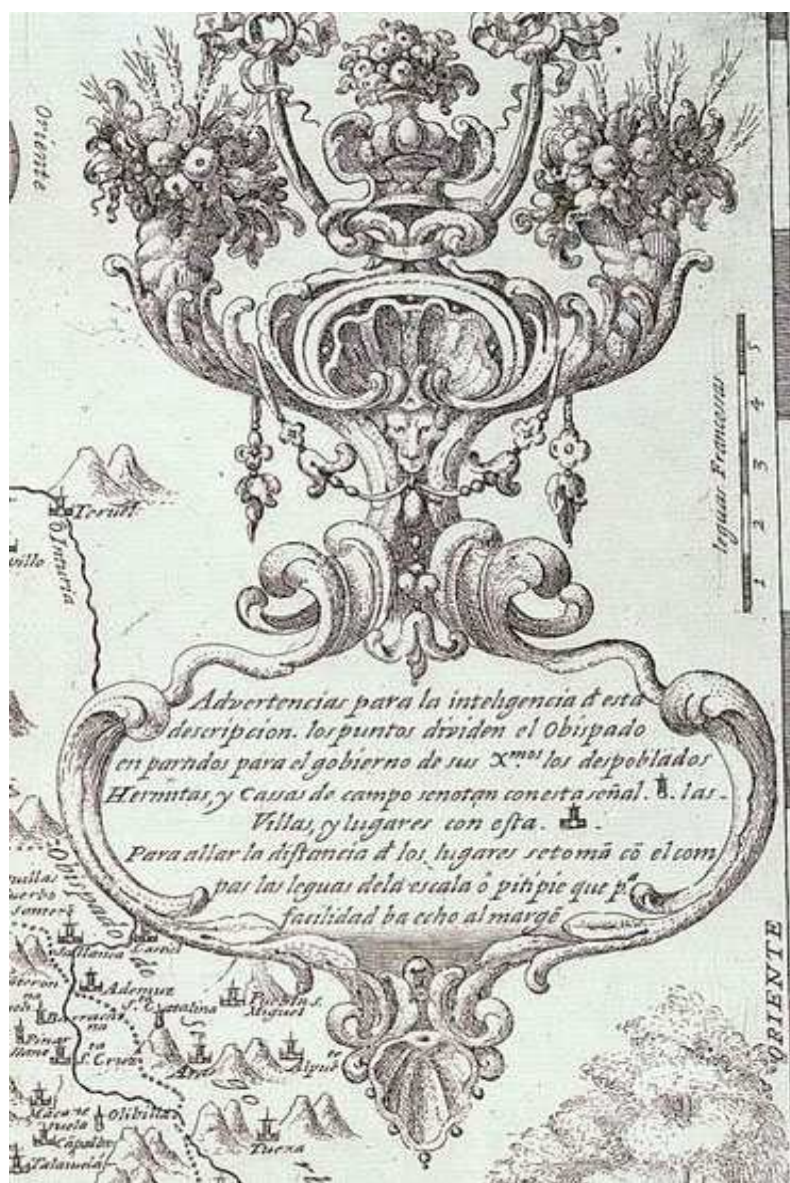 Oriente
leguas Francessas
1 2 3 4 5
Teruel
Turia
villo
Advertencias para la inteligencia đ esta
descripcion. los puntos dividen el Obispado
en partidos para el gobierno de sus Xᵐᵒˢ los despoblados
Hermitas, y Cassas de campo senotan con esta señal. . las
Villas, y lugares con esta. .
Para allar la distancia đ los lugares se tomã cõ el com
pas las leguas dela escala o pitipie que pᵃ
facilidad ba echo al margẽ
Obispado de
ORIENTE
Ademuz
S. Catalina
Puebla S.
Miguel
S. Cruz
Aras
Alpuē
Olibillas
Tuexa